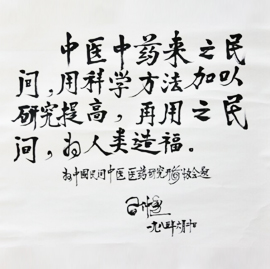 中医中药来之民
间,用科学方法加以
研究提高,再用之民
间,为人类造福.
为中国民间中医医药研究开发协会题
一九八四年六月十日